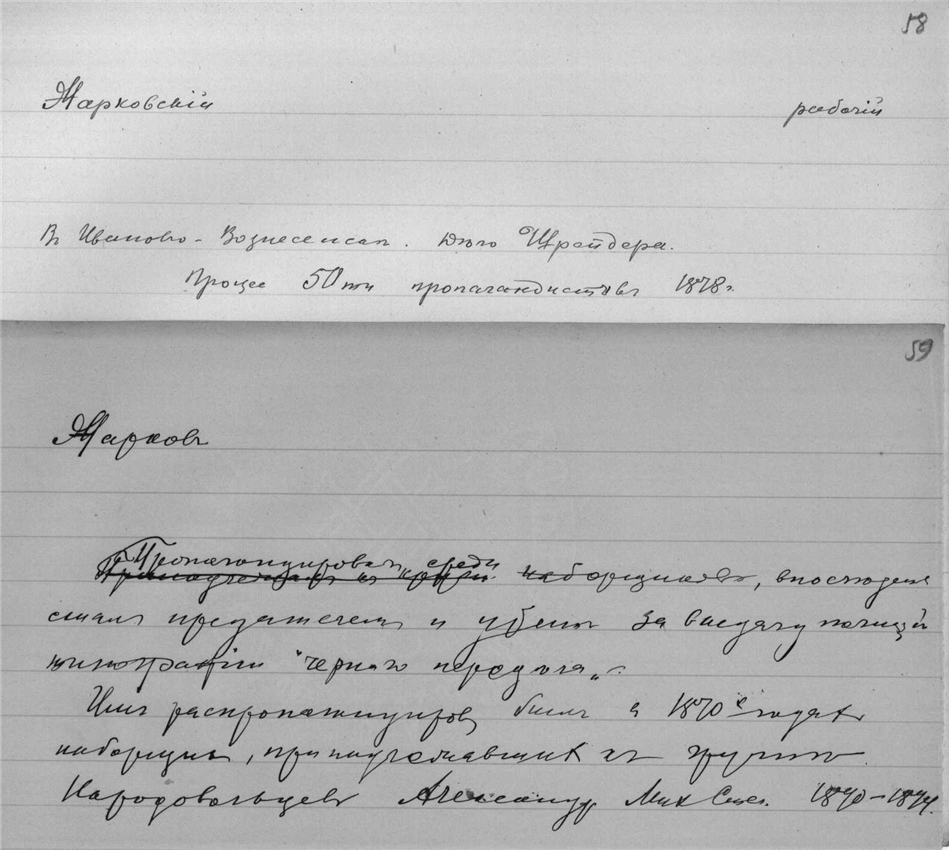 58
Жарковскій рабочій
Въ Иваново-Вознесенск. Дѣло Шрейдера.
Процес 50ти пропагандистовъ 1878г.
59
Жарковъ
Пропагандировалъ среди
наборщиковъ, впослѣдств
сталъ предателемъ и убитъ за выдачу полиціи
типографіи "Чернаго передѣла".
Имъ распропагандировъ былъ в 1870х годахъ
наборщикъ, принадлежавшій къ группѣ
Народовольцевъ Александр Мих 1890–1894.